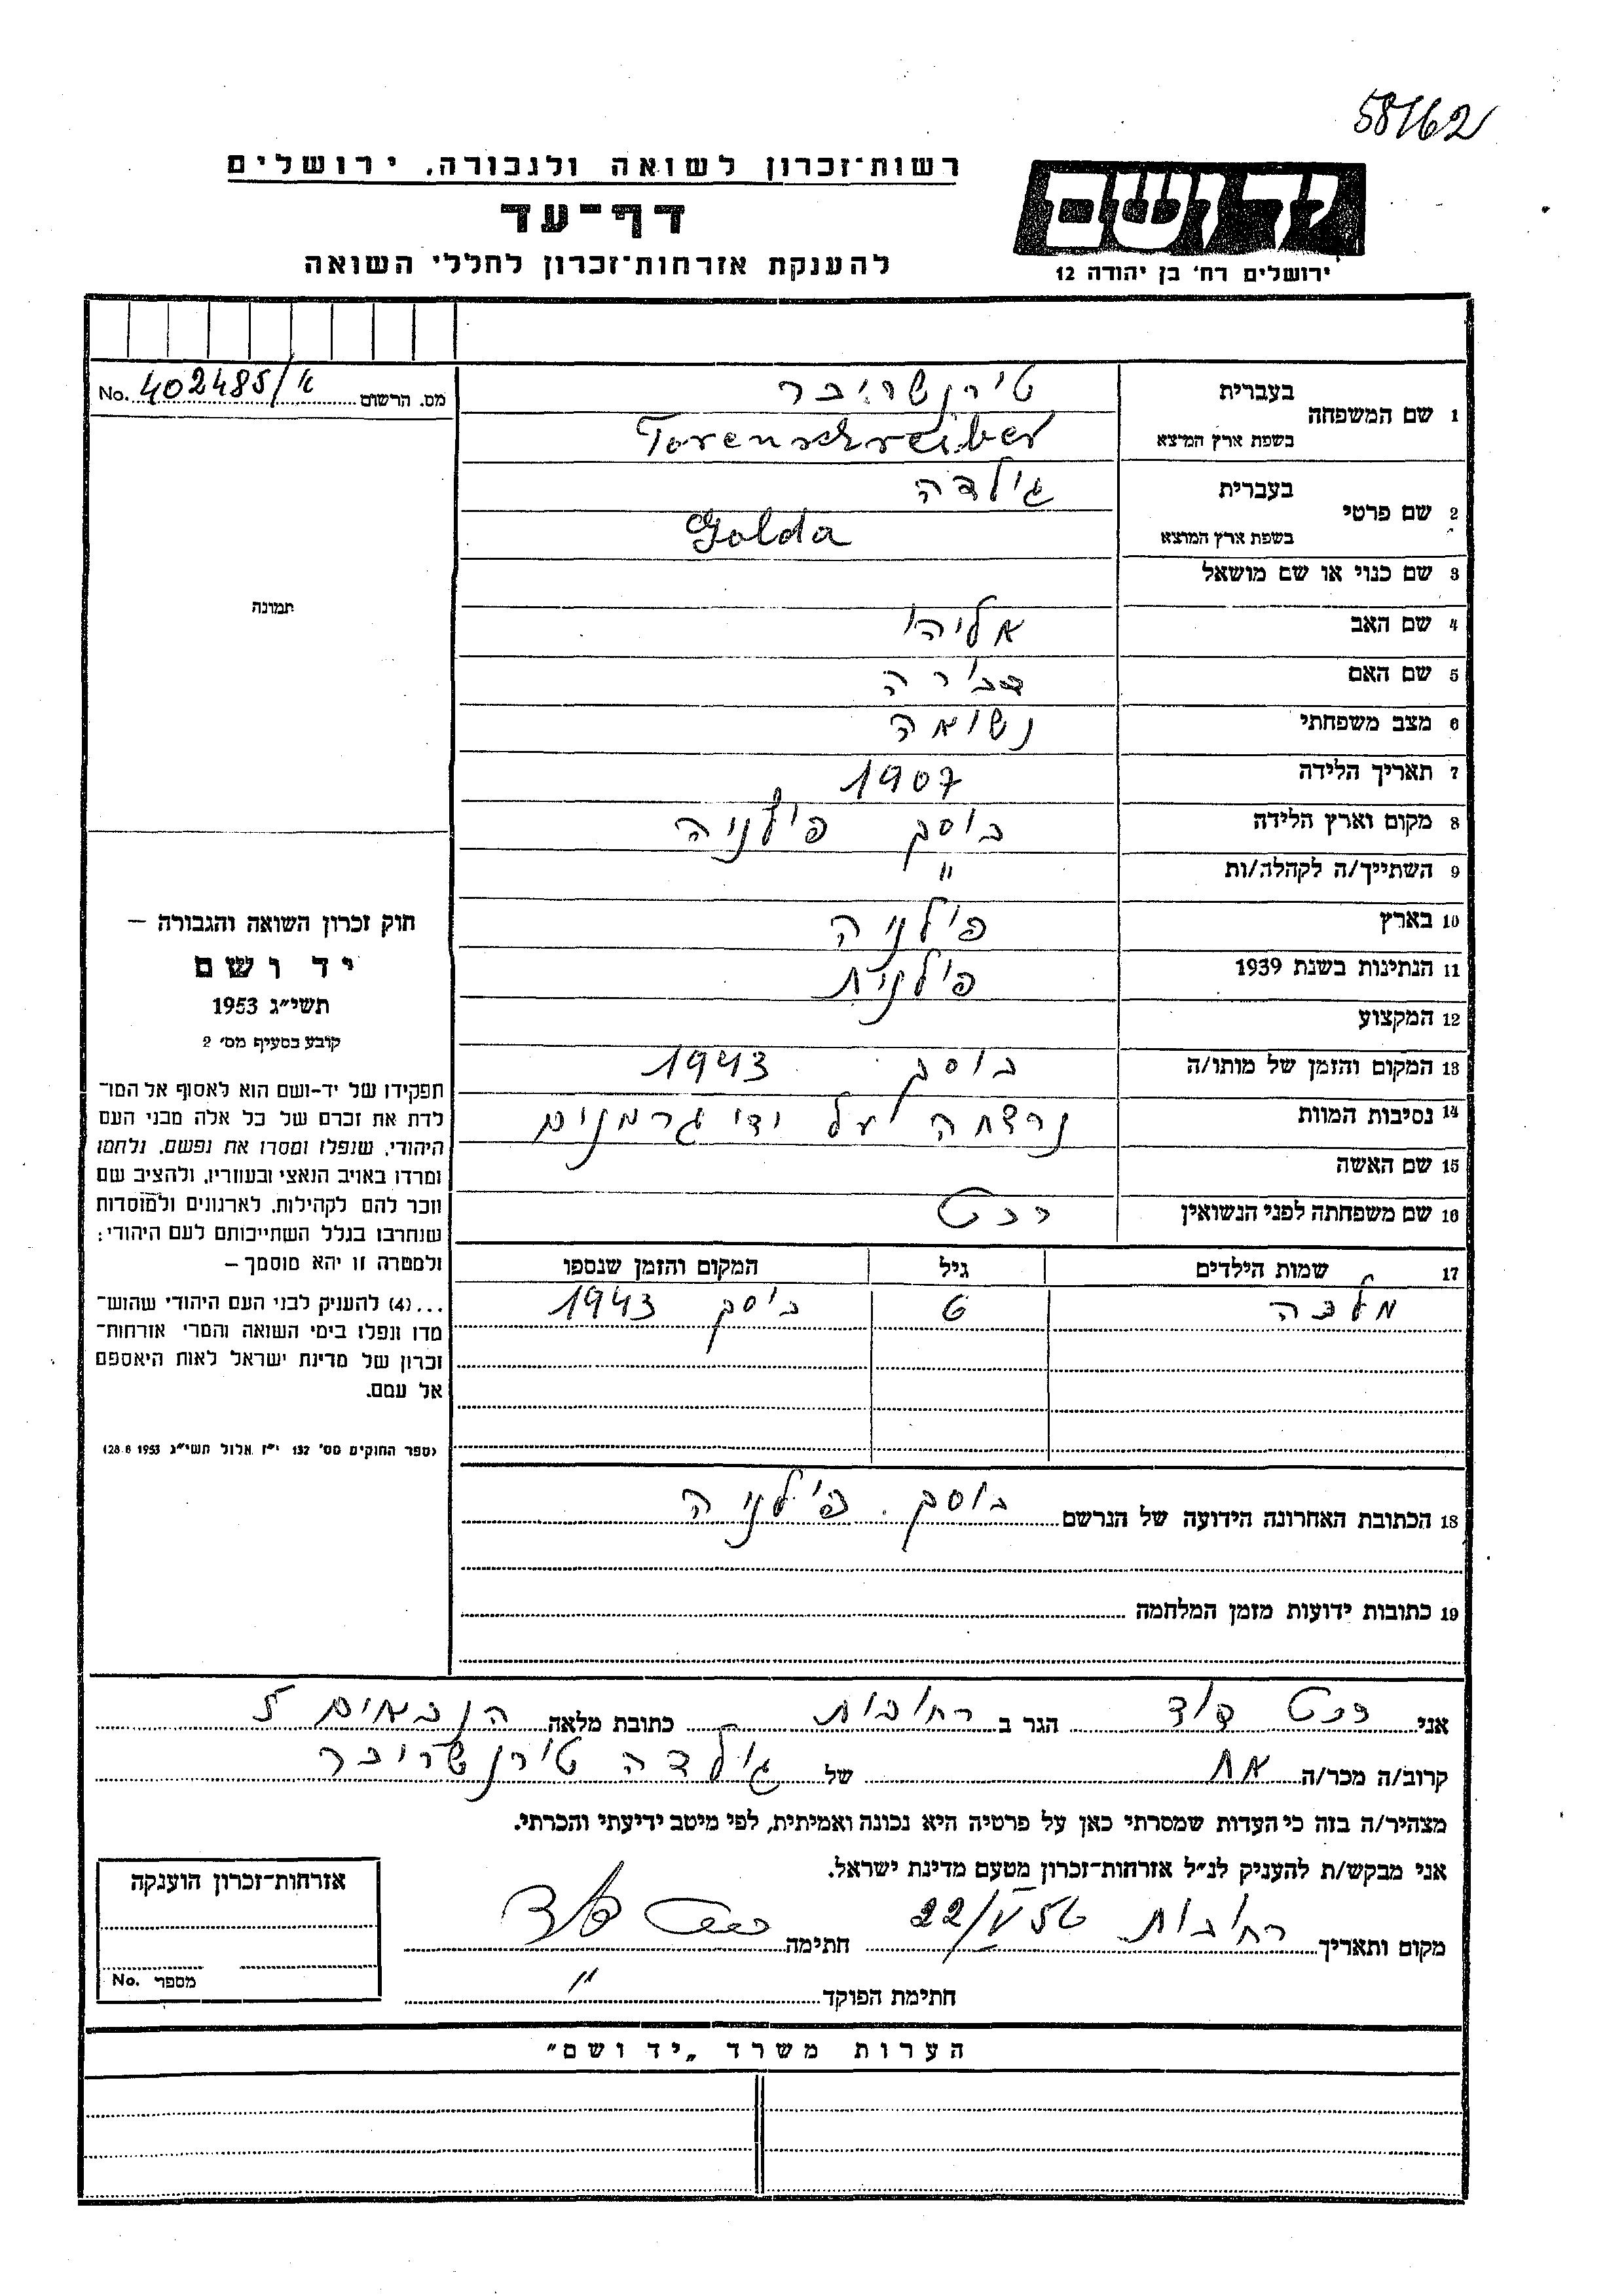 58162
רשות־זכרון לשואה ולגבורה, ירושלים
דף־עד
להענקת אזרחות־זכרון לחללי השואה
יד ושם
ירושלים רח׳ בן יהודה 12
מס. הרשום 402485/ No.
1 שם המשפחה בעברית טירנשרייבר
בשפת ארץ המוצא Torenschreiber
2 שם פרטי בעברית גולדה
בשפת ארץ המוצא Golda
3 שם כנוי או שם מושאל
4 שם האב אליהו
5 שם האם דבורה
6 מצב משפחתי נשואה
7 תאריך הלידה 1907
8 מקום וארץ הלידה בוסק פולניה
9 השתייך/ה לקהלה/ות "
10 בארץ פולניה
11 הנתינות בשנת 1939 פולנית
12 המקצוע
13 המקום והזמן של מותו/ה בוסק 1943
14 נסיבות המוות נרצחה על ידי גרמנים
15 שם האשה
16 שם משפחתה לפני הנשואין
17 שמות הילדים גיל המקום והזמן שנספו
מלכה 6 בוסק 1943
תמונה
חוק זכרון השואה והגבורה –
יד ושם
תשי״ג 1953
קובע בסעיף מס׳ 2
תפקידו של יד-ושם הוא לאסוף אל המו־
לדת את זכרם של כל אלה מבני העם
היהודי, שנפלו ומסרו את נפשם, נלחמו
ומרדו באויב הנאצי ובעוזריו, ולהציב שם
וזכר להם לקהילות, לארגונים ולמוסדות
שנחרבו בגלל השתייכותם לעם היהודי;
ולמטרה זו יהא מוסמך –
...(4) להעניק לבני העם היהודי שהוש־
מדו ונפלו בימי השואה והמרי אזרחות־
זכרון של מדינת ישראל לאות היאספם
אל עמם.
(ספר החוקים מס׳ 132 י״ז אלול תשי״ג 28.8.1953)
18 הכתובת האחרונה הידועה של הנרשם בוסק. פולניה
19 כתובות ידועות מזמן המלחמה
אני דוד הגר ב רחובות כתובת מלאה הנביאים 5
קרוב/ה מכר/ה אח של גולדה טירנשרייבר
מצהיר/ה בזה כי העדות שמסרתי כאן על פרטיה היא נכונה ואמיתית, לפי מיטב ידיעתי והכרתי.
אני מבקש/ת להעניק לנ״ל אזרחות-זכרון מטעם מדינת ישראל.
מקום ותאריך רחובות 22/V 56 חתימה דוד
חתימת הפוקד "
אזרחות-זכרון הוענקה
מספר No.
הערות משרד „יד ושם"